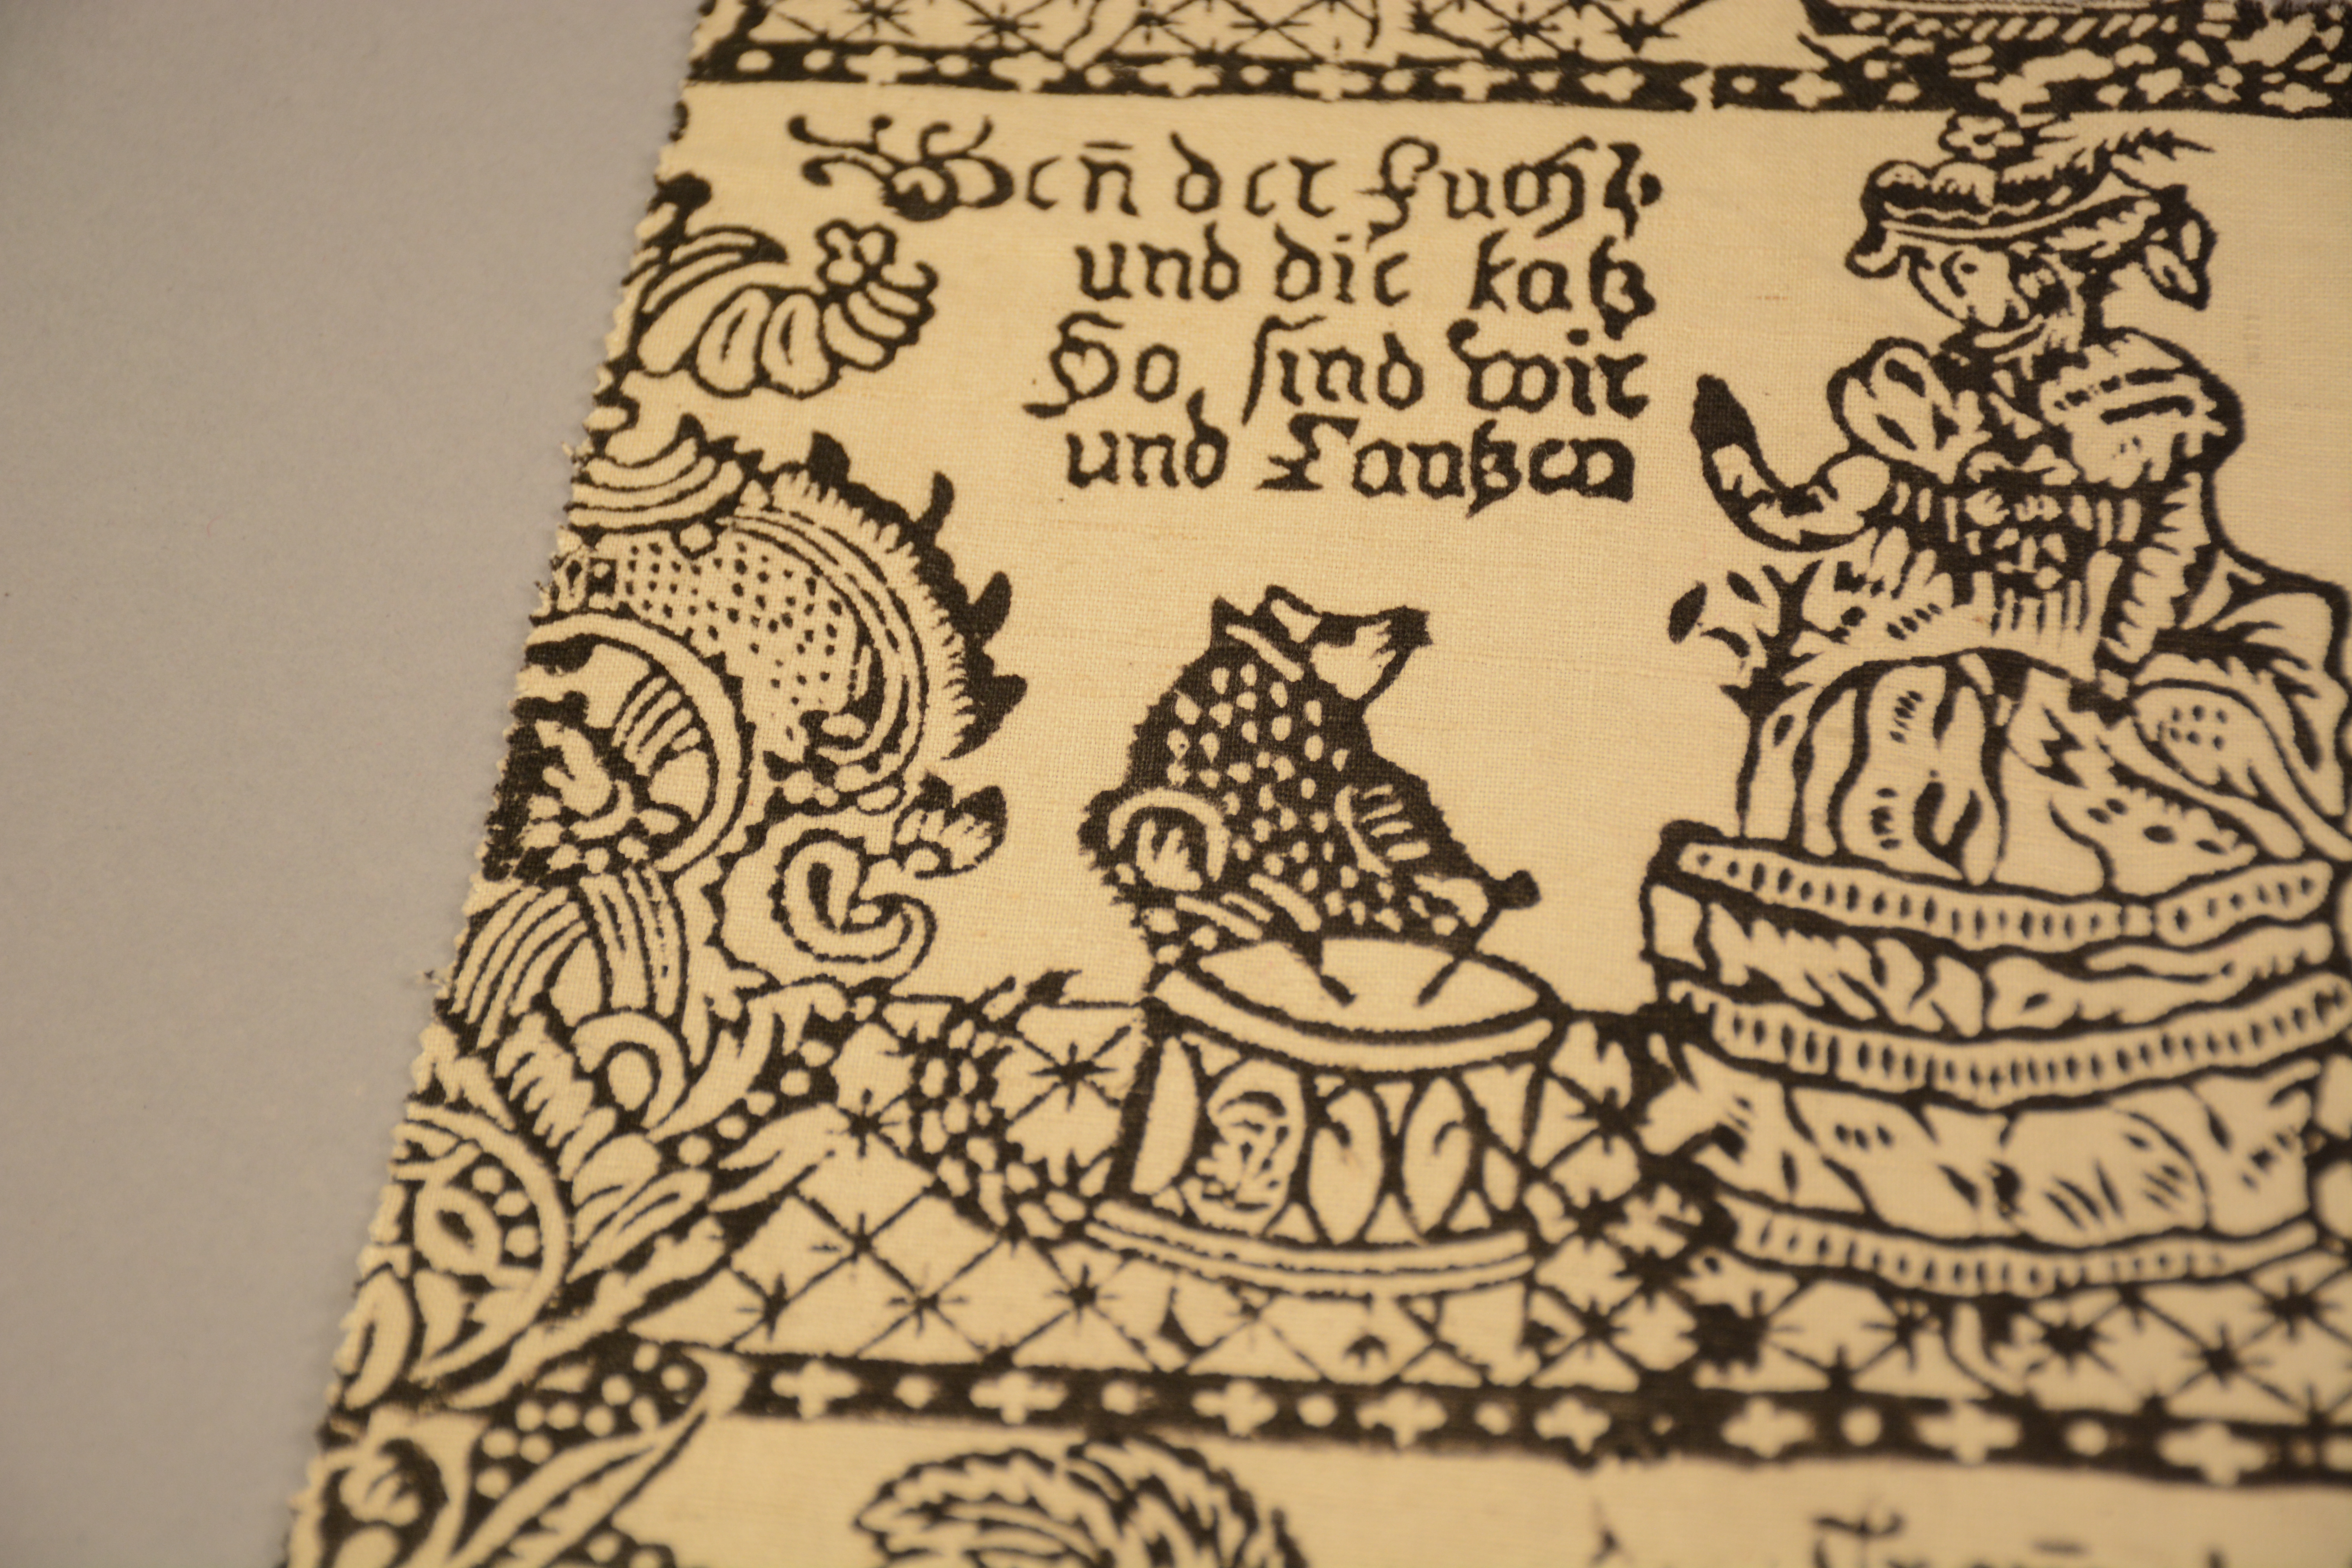 Wen̄ der Fuchs
und die katz
So sind wir
und Tantzen